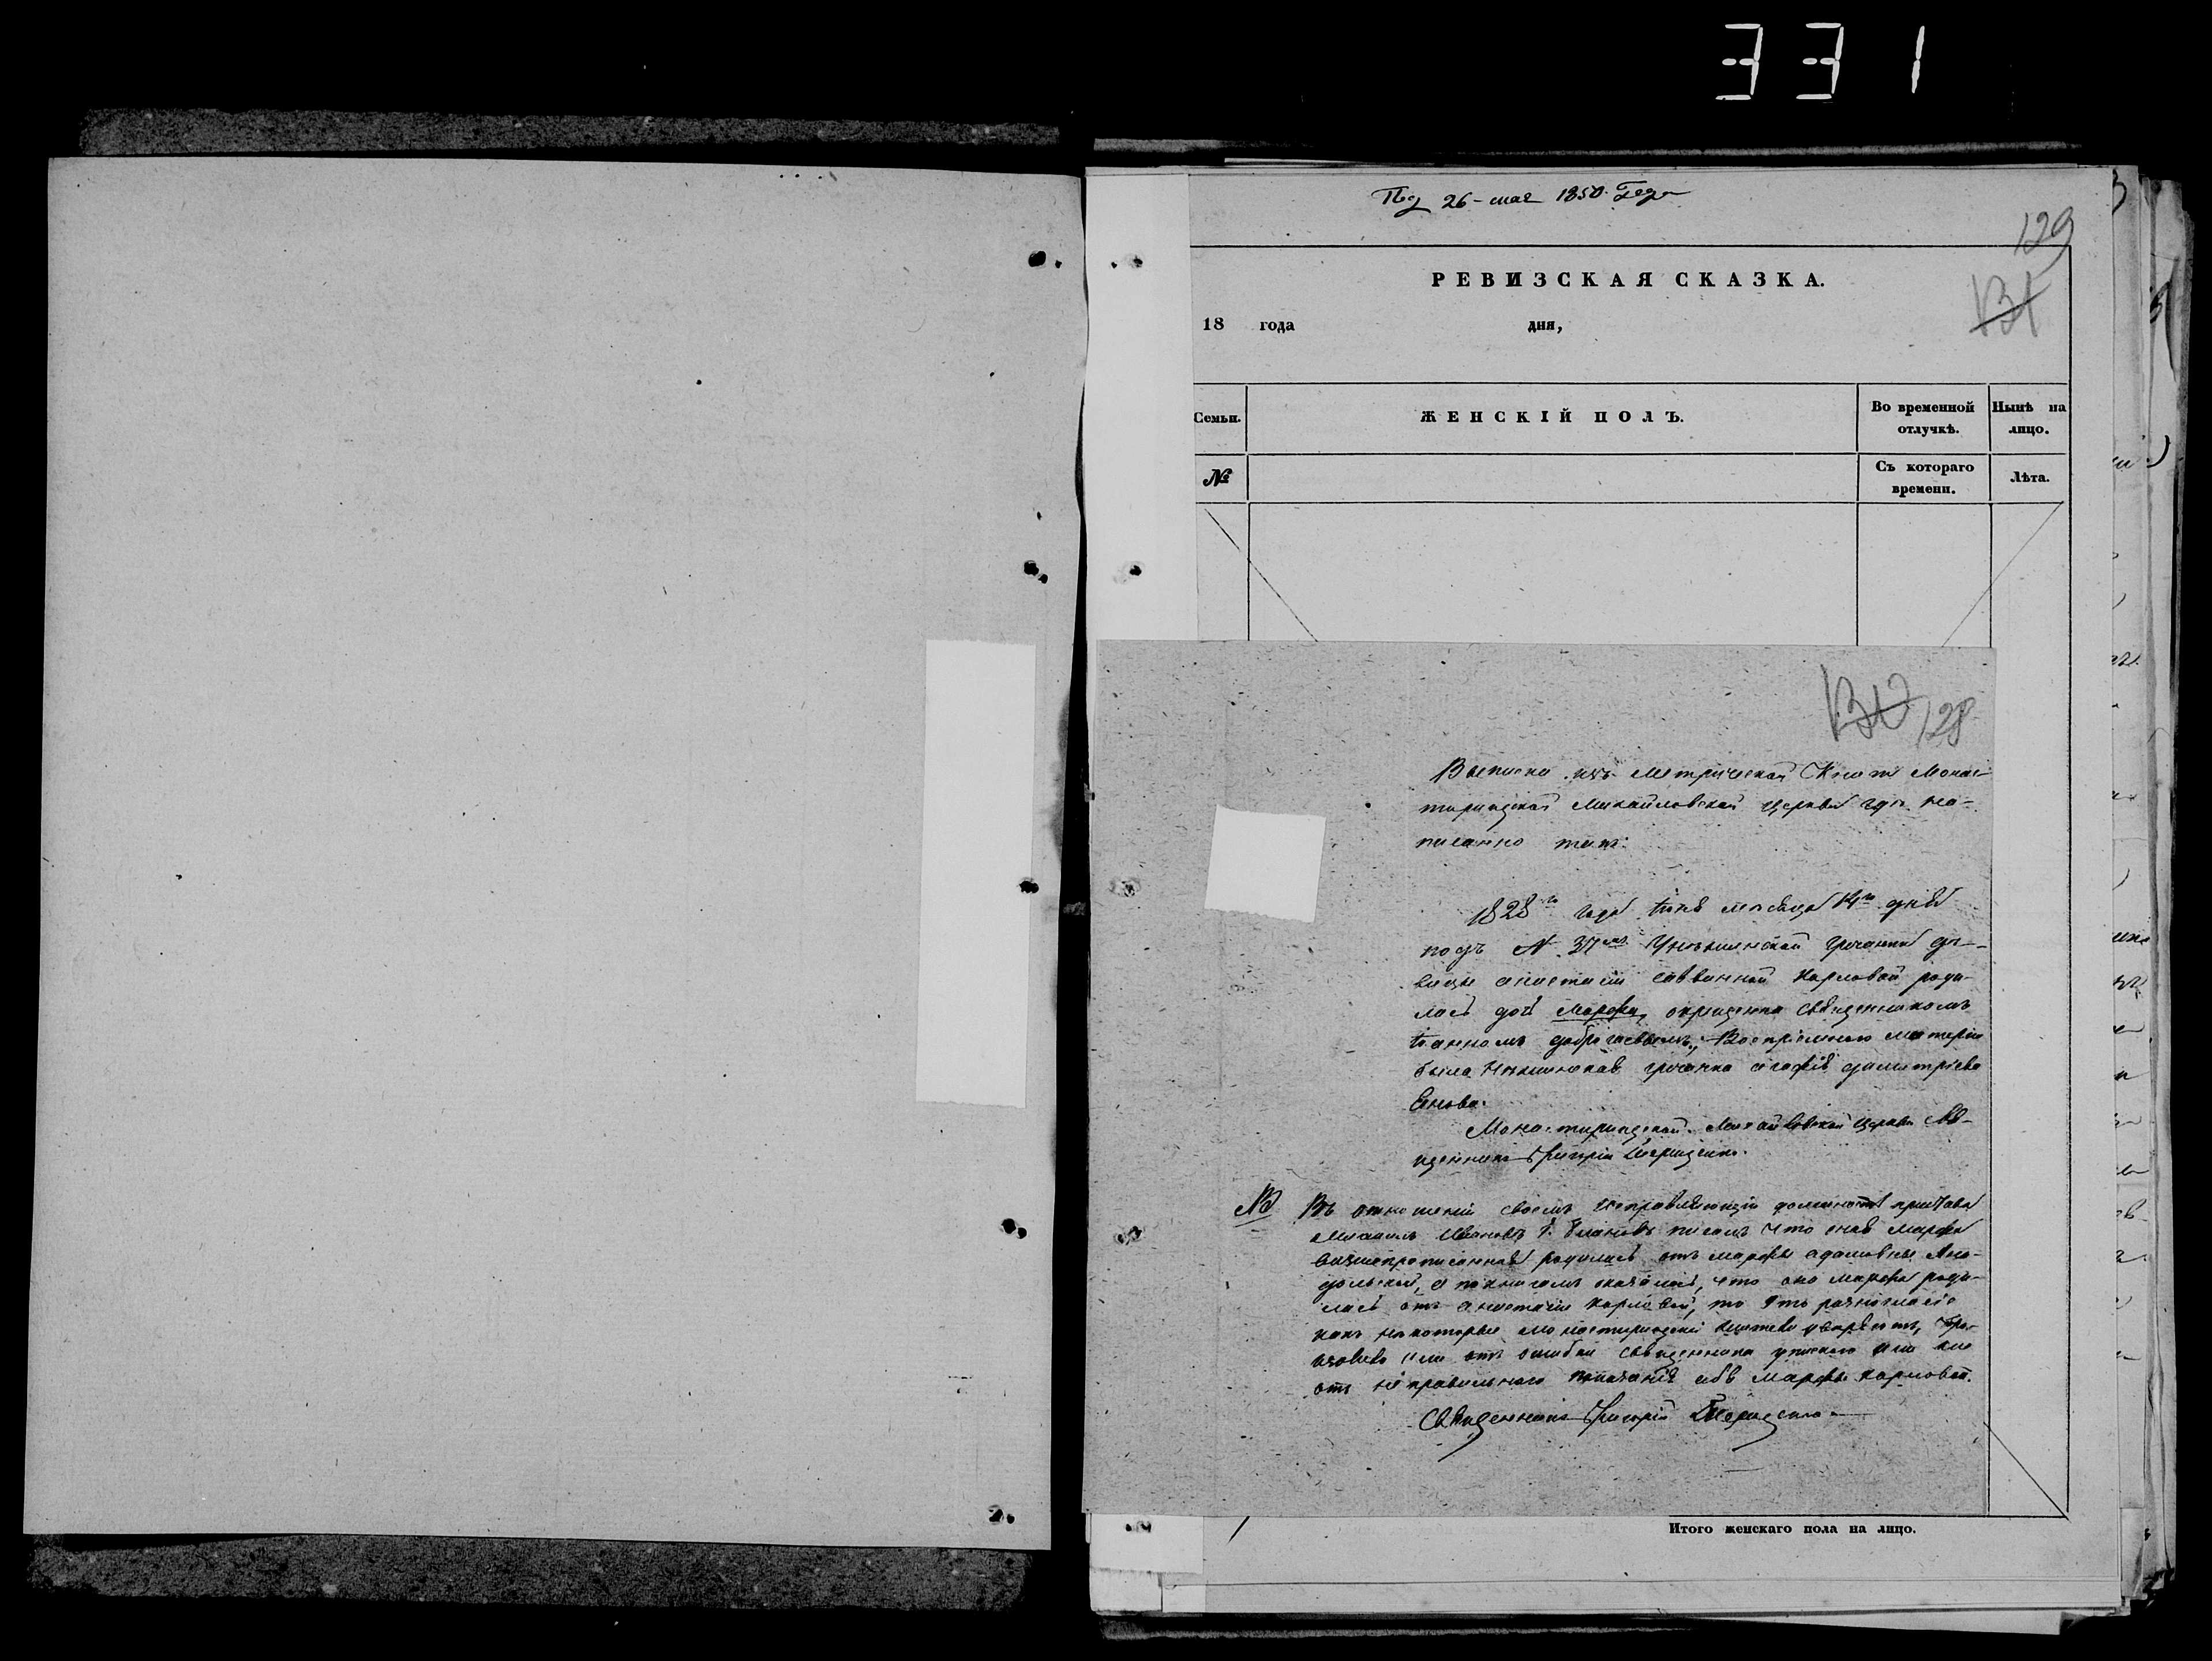 331
Под 26 мая 1850 Года
129
131
РЕВИЗСКАЯ СКАЗКА.
18 года дня,
Семьи. ЖЕНСКІЙ ПОЛЪ. Во временной отлучкѣ. Нынѣ на лицо.
№ Съ котораго времени. Лѣта.
130 128
Выписка изъ метрической Книги Монас-
тырищской Михайловской Церкви гдѣ на-
писанно такъ:
1828го года Іюня месяца 14го дня
подъ № 37мъ Унѣжинской гречанки дѣ-
вицы анастасіи саввиной Карповой роди-
лась дочь Марфа, окрещена священникомъ
Іоанномъ, Воспріемною матерью
была Нѣжинская гречанка агафія димитріева
Монастырищской Михайловской Церкви Свя-
щенникъ Григорій
NB Въ отношеніи своемъ Исправляющій должность пристава
писалъ что оная Марфа
вышепрописанная родилась отъ марфы адамовны
а по книгамъ оказалось, что она марфа роди-
лась отъ анастасіи Карповой, то это разногласіе
какъ некоторые монастырищскіи жители, про-
изошло или отъ ошибки священника или
отъ неправильнаго показанія Марфы Карповой.
Священникъ Григорій
Итого женскаго пола на лицо.